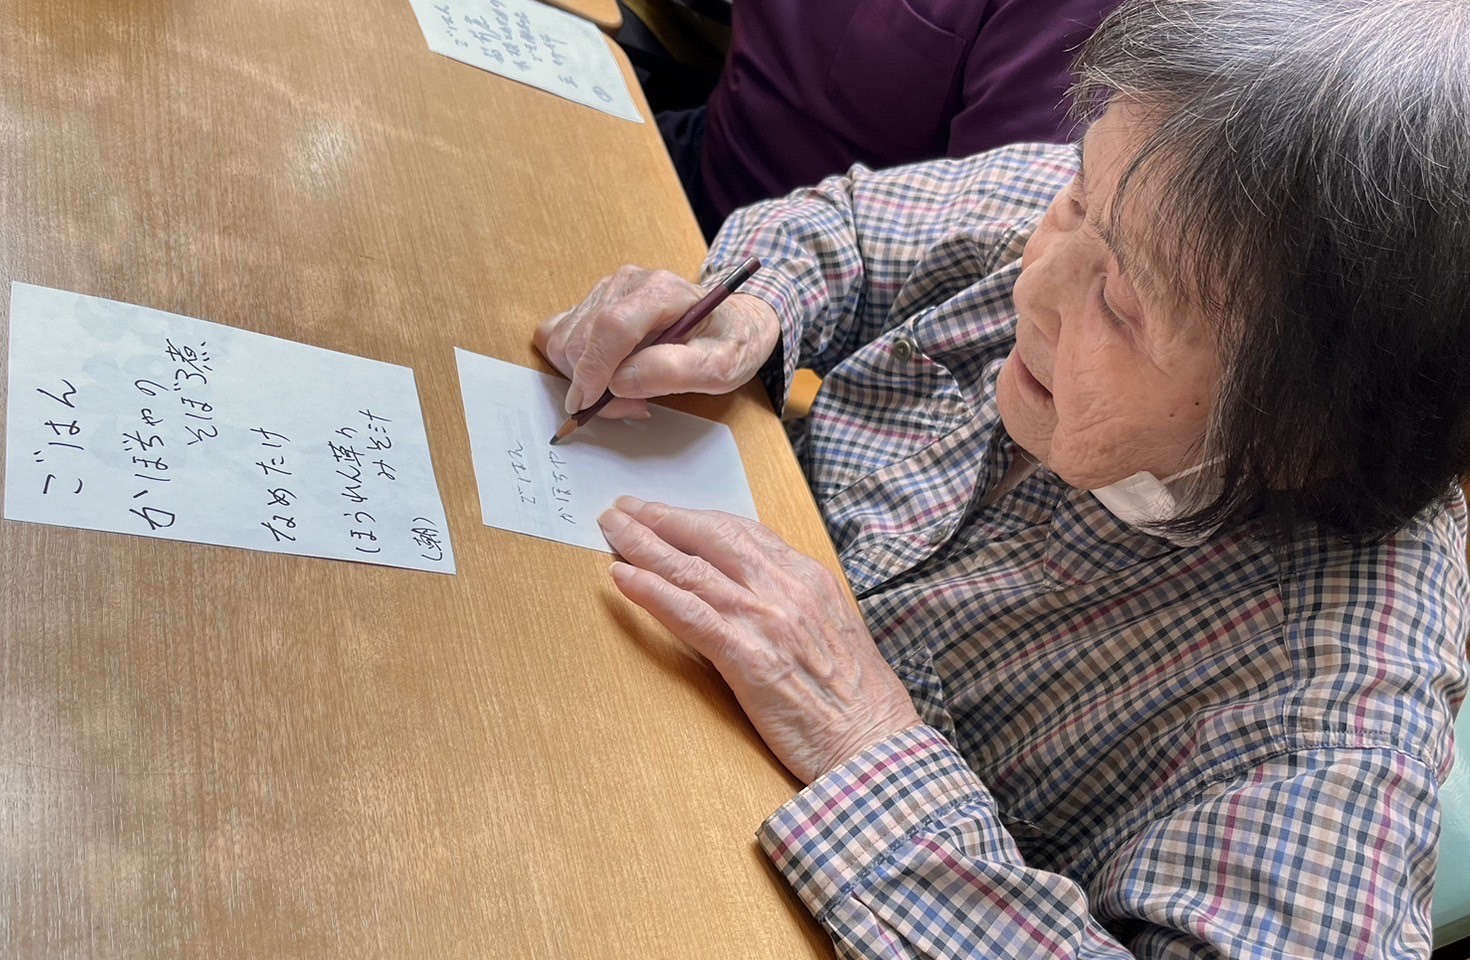 ごはん
かぼちゃの
そぼろ煮
なめたけ
ほうれん草の
みそ汁
(朝)
ごはん
かぼちゃ
ごはん